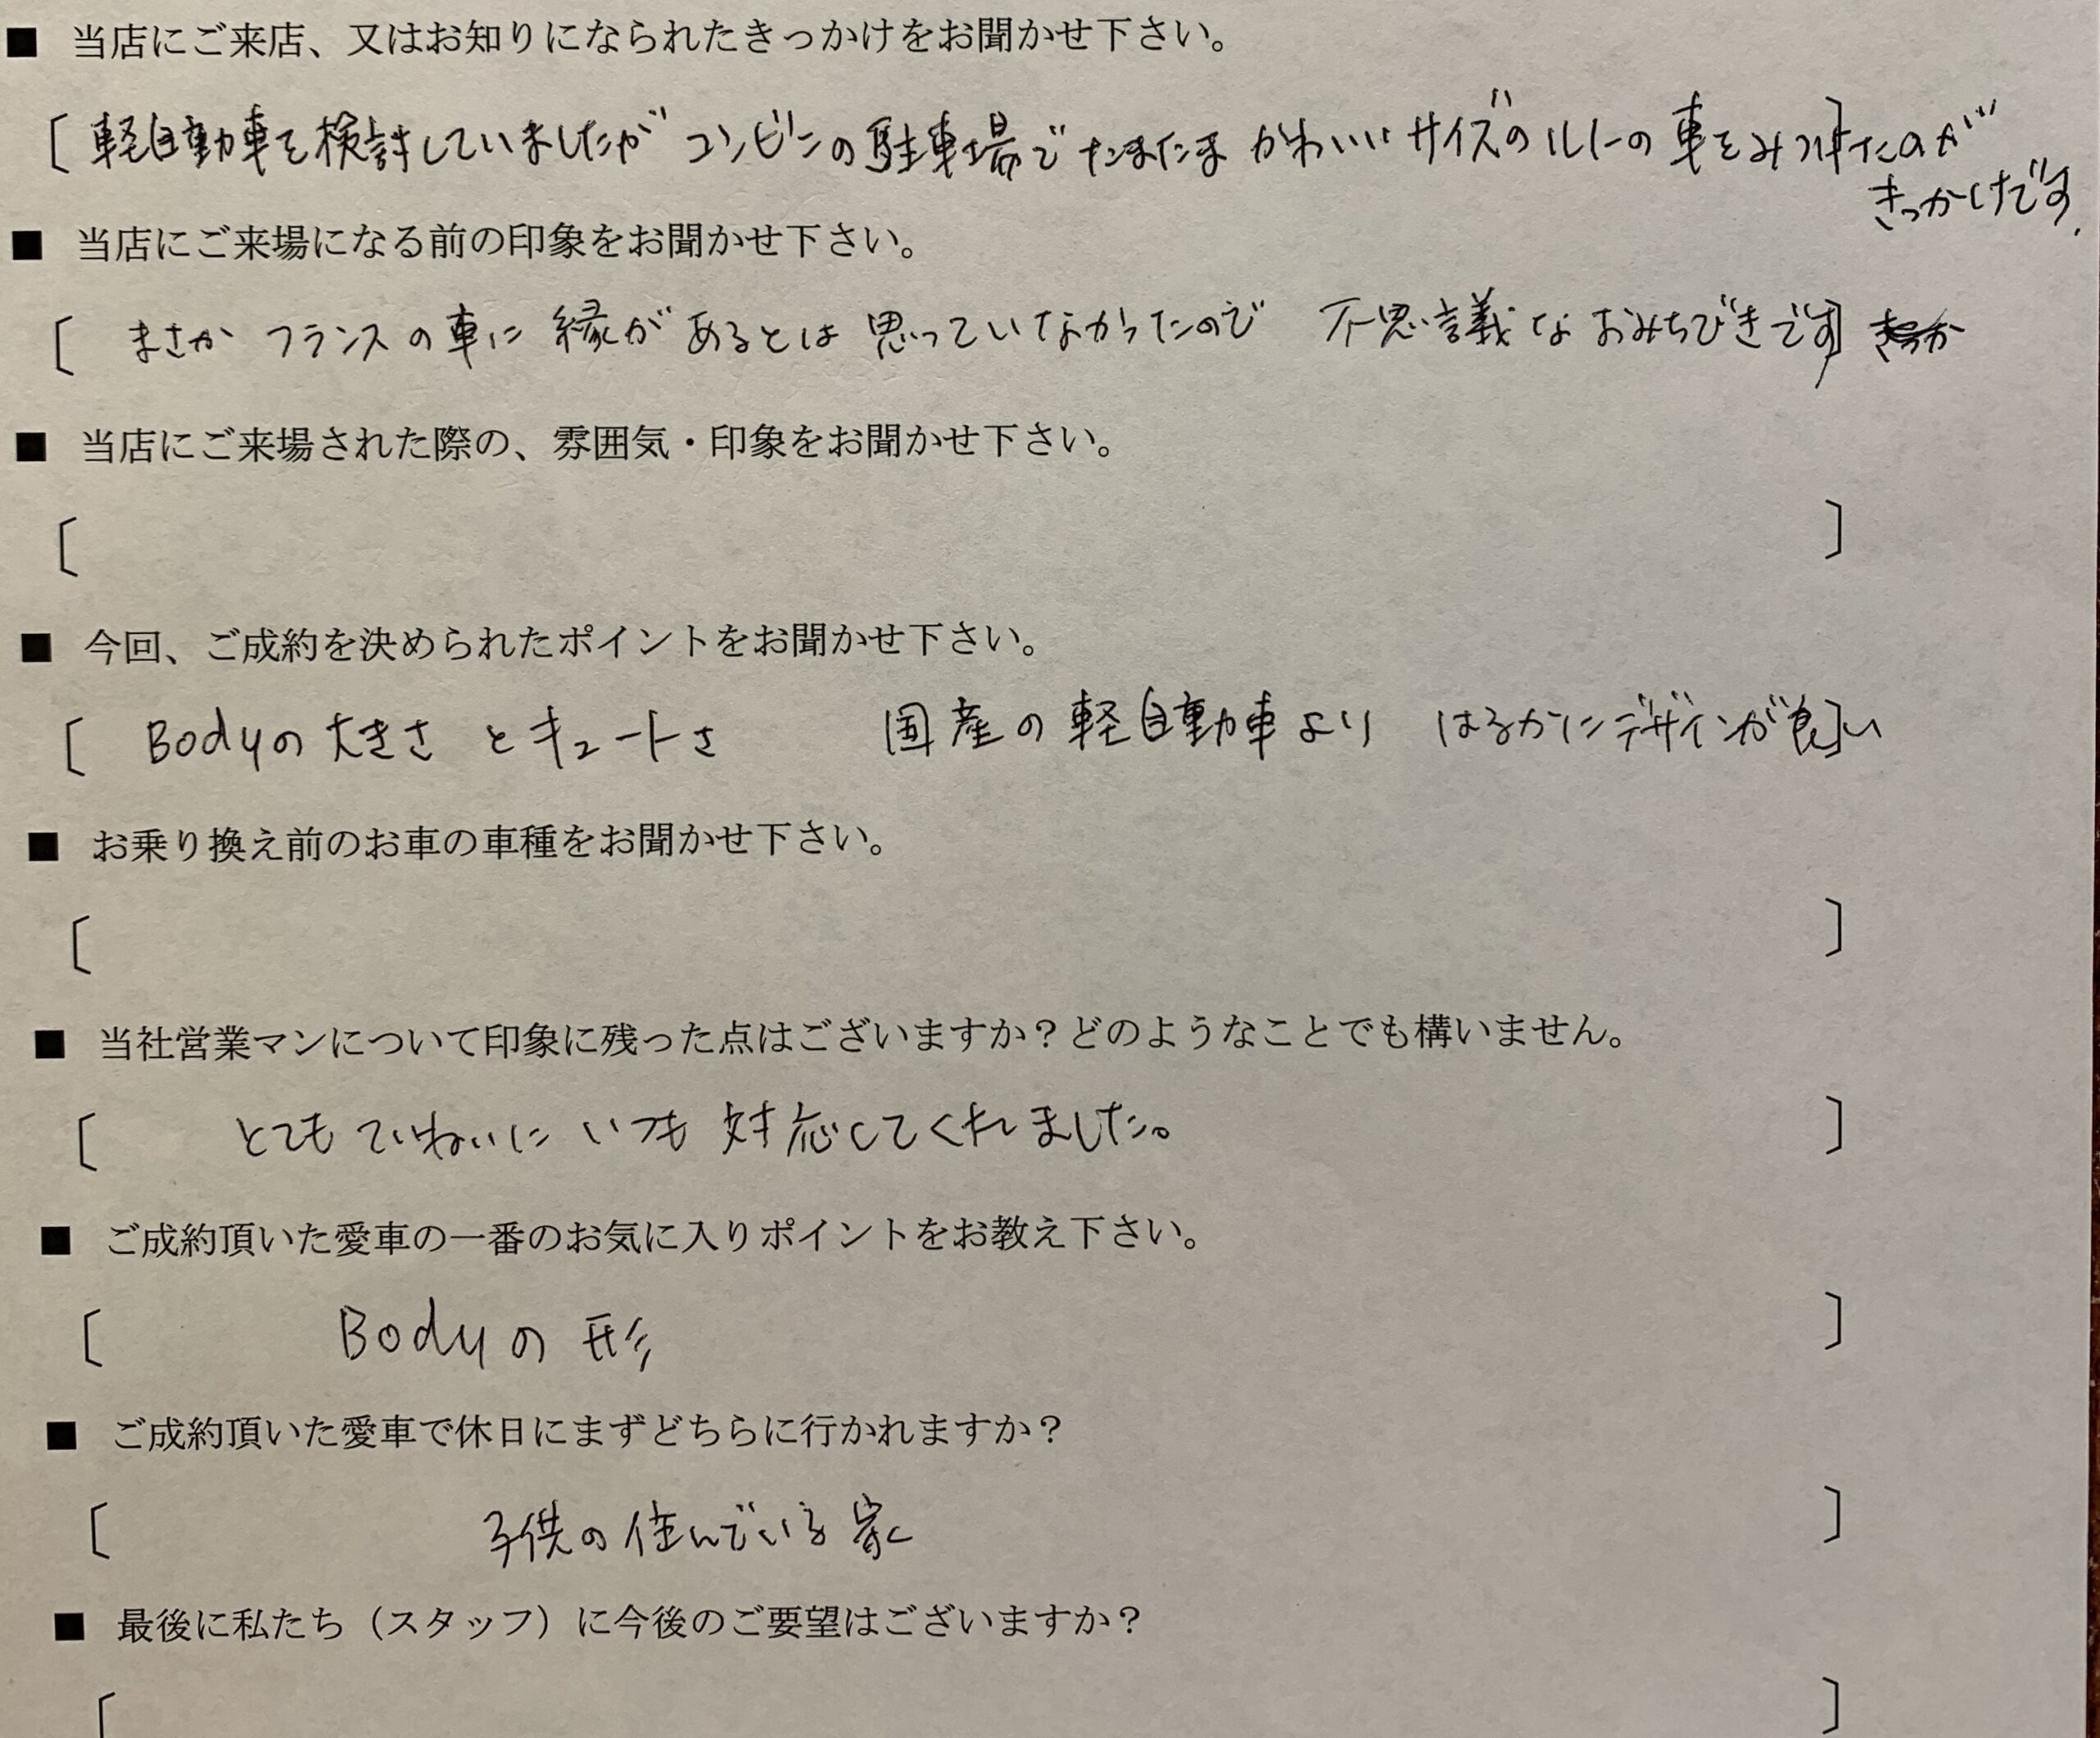 ■ 当店にご来店、又はお知りになられたきっかけをお聞かせ下さい。
〔 軽自動車を検討していましたが コンビニの駐車場で たまたま かわいい サイズの ルノーの 車を みつけたのが 〕
きっかけです.
■ 当店にご来場になる前の印象をお聞かせ下さい。
〔 まさか フランスの車に 縁が あるとは 思っていなかったので 不思議な おみちびきです 〕
■ 当店にご来場された際の、雰囲気・印象をお聞かせ下さい。
〔 〕
■ 今回、ご成約を決められたポイントをお聞かせ下さい。
〔 Bodyの 大きさ と キュートさ 国産の 軽自動車より はるかに デザインが 良い 〕
■ お乗り換え前のお車の車種をお聞かせ下さい。
〔 〕
■ 当社営業マンについて印象に残った点はございますか？どのようなことでも構いません。
〔 とても ていねいに いつも 対応してくれました。 〕
■ ご成約頂いた愛車の一番のお気に入りポイントをお教え下さい。
〔 Bodyの 形 〕
■ ご成約頂いた愛車で休日にまずどちらに行かれますか？
〔 子供の 住んでいる 家 〕
■ 最後に私たち（スタッフ）に今後のご要望はございますか？
〔 〕